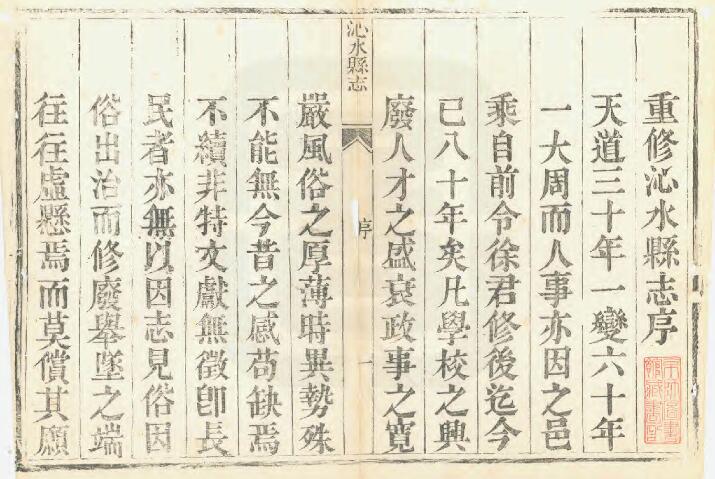 重修沁水縣志序
天道三十年一變六十年
一大周而人事亦因之邑
乘自前令徐君修後迄今
已八十年矣凡學校之興
廢人才之盛衰政事之寬
沁水縣志
序
一
嚴風俗之厚薄時異勢殊
不能無今昔之感苟缺焉
不續非特文獻無徵卽長
民者亦無以因志見俗因
俗出治而修廢舉墜之端
往往虛懸焉而莫償其願